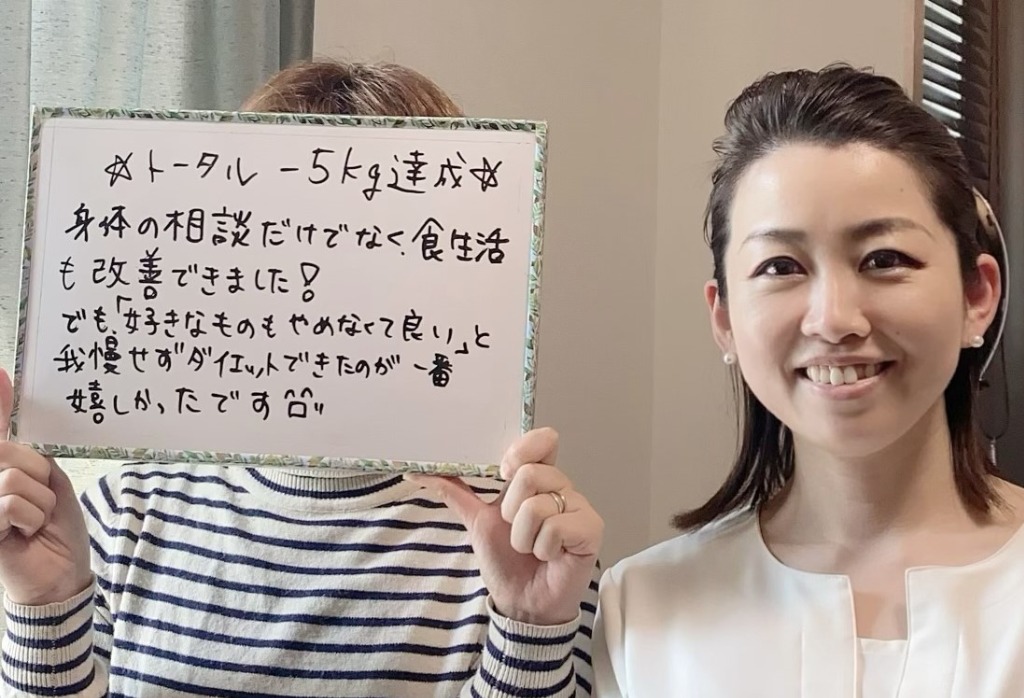 ☆トータル -5kg達成☆
身体の相談だけでなく、食生活
も改善できました!
でも、「好きなものもやめなくて良い」と
我慢せずダイエットできたのが一番
嬉しかったです^ロ^"